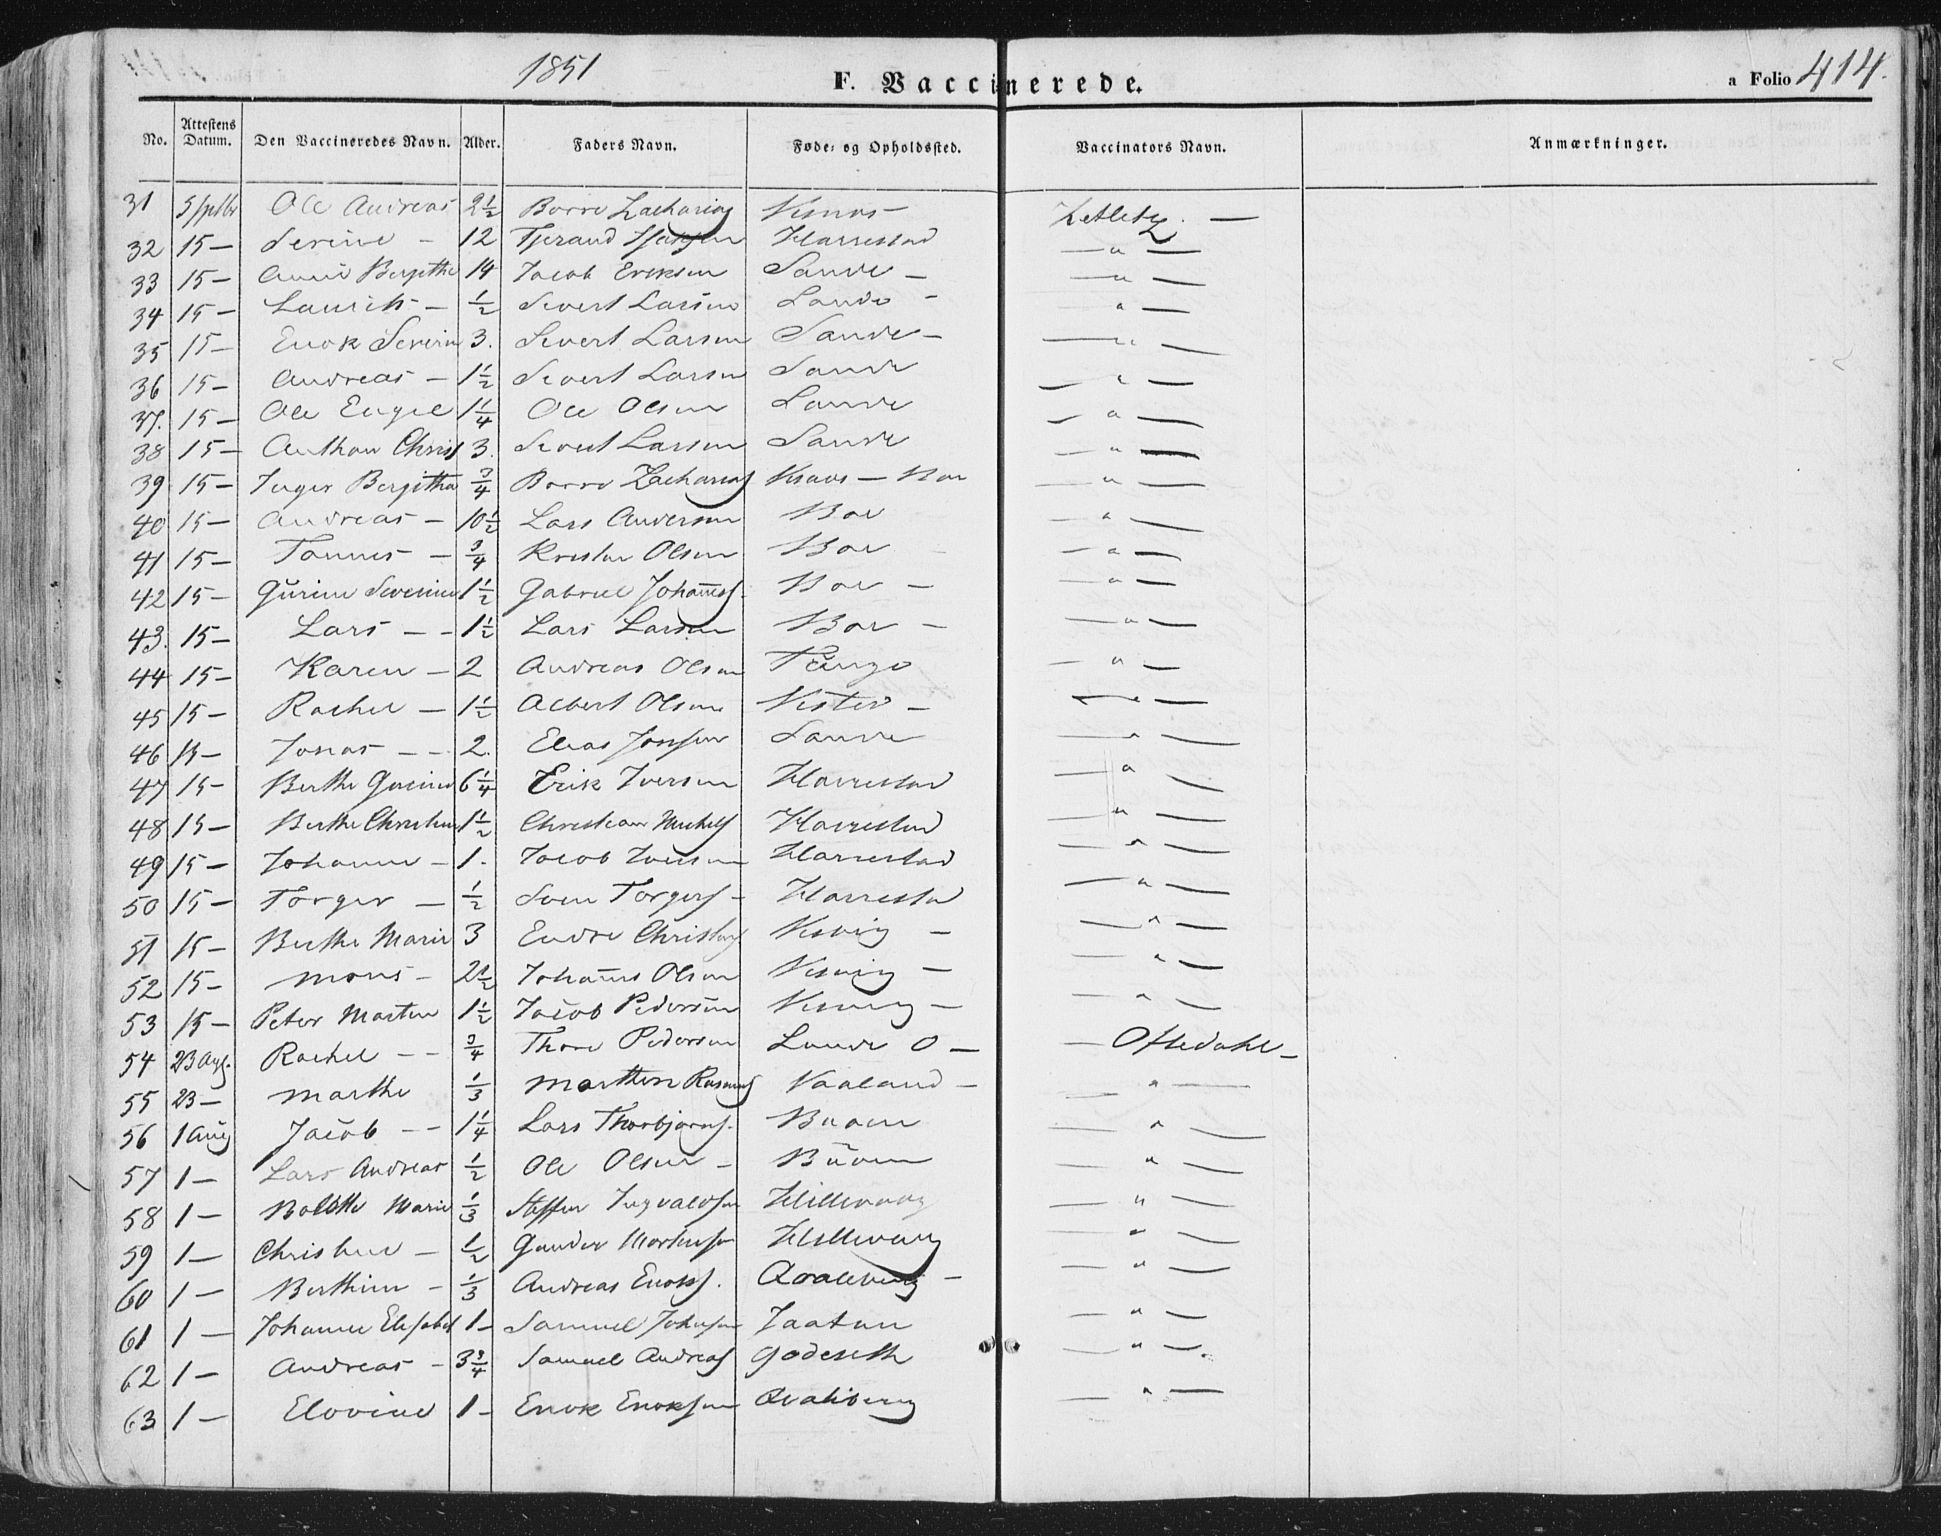 1851
F. Vaccinerede.
a Folio 414.
No. Attestens Datum. Den Vaccineredes Navn. Alder. Faders Navn. Føde- og Opholdssted. Vaccinators Navn. Anmærkninger.
31 Ole Andreas 2½ Borre Zacharias
32 15 — Serine — 12 Harrestad — " —
33 15 — Bergithe 14 Jacob Eriksen Sande — — " —
34 15 — Laurits — ½ Sivert Larsen Sande — " —
35 15 — Enok Severin 3. Sivert Larsen Sande — — " —
36 15 — Andreas — 1½ Sivert Larsen Sande — " —
37. 15 — Ole Engel 1¼ Ole Olsen Sande — " —
38 15 — Anthon Christ 3. Sivert Larsen Sande — " —
39 15 — Inger Bergitha ¾ Borre Zacharias — " —
40 15 — Andreas — 10½ Lars Andersen Boe — " —
41 15 — Tønnes — ¾ Kristen Olsen Boe — " —
42 15 — Gurine Severine 1½ Gabriel Johannes. Boe — — " —
43. 15 — Lars — — 1½ Lars Larsen Boe — — " —
44 15 — Karen — 2 Andreas Olsen Tungo — " —
45 15 — Rachel — 1½ Albert Olsen Viste — — " —
46 15 — Jonas — — 2. Elias Jonsen Sande — " —
47 15 — Berthe Gurine 6¼ Erik Iversen Harrestad — " —
48 15 — Berthe Christine 1½ Christian Michels Harrestad — " —
49 15 — Johanne — 1. Jacob Iversen Harrestad — " —
50 15 — Torger — ½ Sven Torgers — Harrestad — " —
51 15 — Berthe Marie 3 Endre Christens Visvig — — " —
52 15 — Mons — 2½ Johannes Olsen Visvig — — " —
53 15 — Peter Marten 1½ Jacob Pedersen Visvig — — " —
54 23 Aug. Rachel — — ¾ Thore Pedersen Lunde O — — Oftedahl —
55 23 — Marthe ⅓ Marthen Rasmus Vaaland — " —
56 1 Aug Jacob — — 1¼ Lars Thorbjørns. Buøen — " —
57 1 — Lars Andreas ½ Ole Olsen — Buøen — " —
58 1 — Bolette Marie ⅓ Steffen Ingvaldsen Hillevaag — " —
59 1 — Christine — ½ Gunder Mortensen Hillevaag — " —
60 1 — Berthine — ⅓ Andreas Enoks. Qvaleberg — — " —
61 1 — Johanne Elisabet 1 — Samuel Johnsen Jaatun — " —
62 1 — Andreas — 3¾ Samuel Andreas Godeseth — " —
63 1 — Elovine 1 — Enok Enoksen Qvaleberg — " —